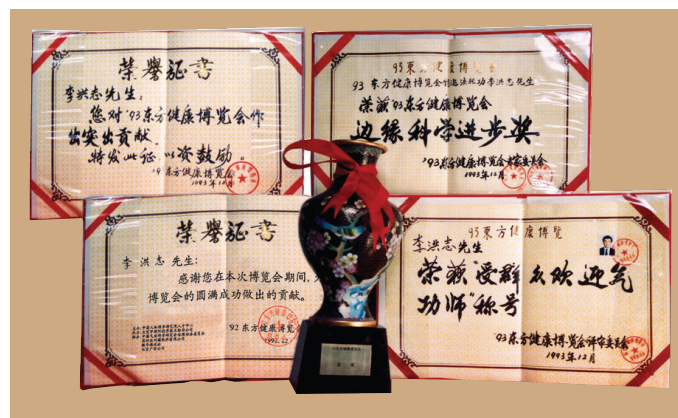 荣誉证书
李洪志先生:
您对'93东方健康博览会作
出突出贡献.
特发此证 以资鼓励。
'93东方健康博览会
1993年12月
93東方健康博览会
'93 东方健康博览会
法轮功李洪志先生
荣获'93东方健康博览会
边缘科学进步奖
'93东方健康博览会
1993年12月
荣誉证书
李 洪 志 先生:
感谢您在本次博览会期间,
博览会的圆满成功做出的贡献。
'92 东方健康博览会
1992.12
93東方健康博览
李洪志先生
荣获"受群众欢迎气
功师"称号
'93东方健康博览会评审委员会
1993年12月